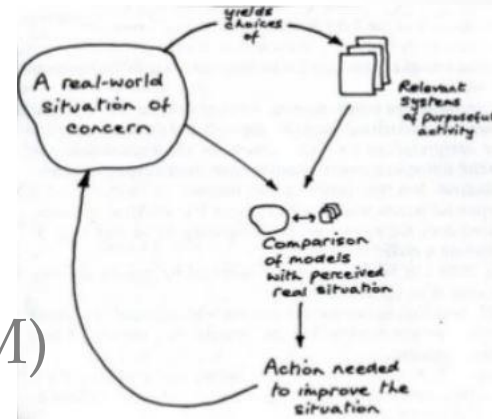 yields
choices
of
A real-world
situation of
concern
Relevant
systems
of purposeful
activity
Comparison
of models
with perceived
real situation
M)
Action needed
to improve the
situation